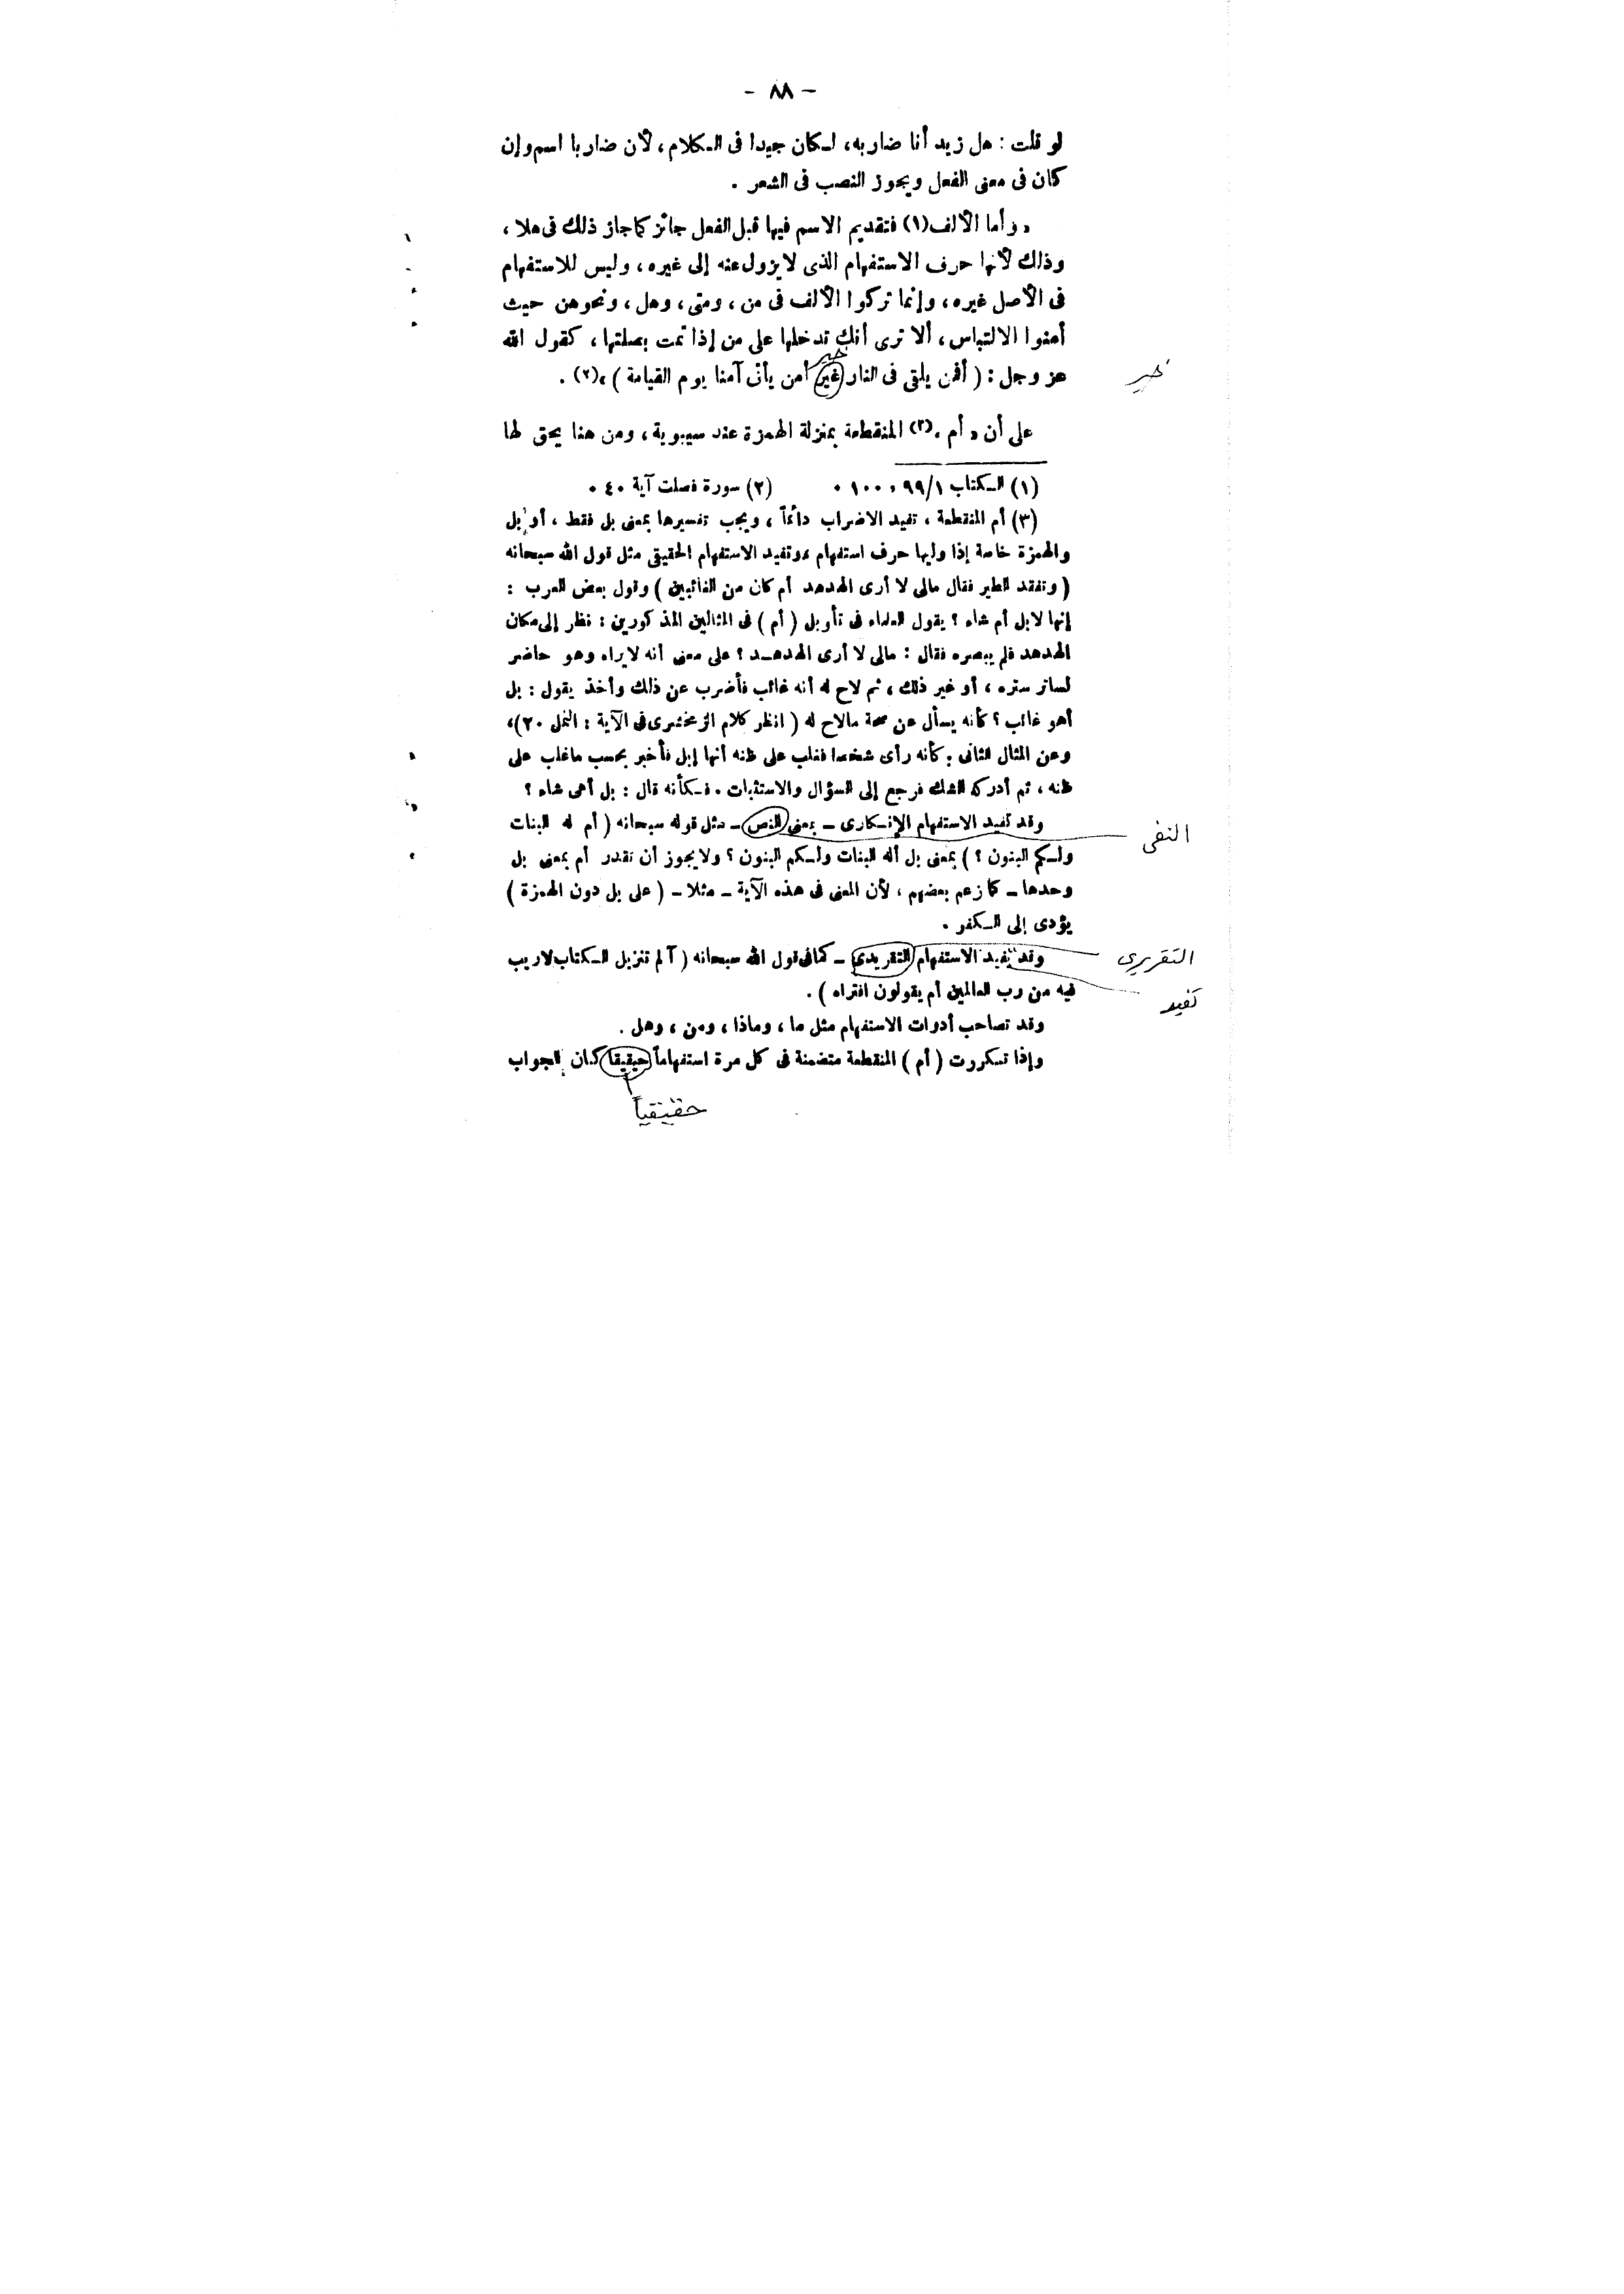 - ٨٨ -
لو قلت : هل زيد أنا ضاربه، لكان جيدا فى الكلام، لأن ضاربا اسم وإن
كان فى معنى الفعل ويجوز النصب فى الشعر .
« وأما الألف(١) فتقديم الاسم فيها قبل الفعل جائز كما جاز ذلك فى هلا ،
وذلك لأنها حرف الاستفهام الذى لا يزول عنه إلى غيره ، وليس للاستفهام
فى الأصل غيره ، وإنما تركوا الألف فى من ، ومتى ، وهل ، ونحوهن حيث
أمنوا الالتباس ، ألا ترى أنك تدخلها على من إذا تمت بصلتها ، كقول الله
خير
عز وجل : ( أفمن يلقى فى النار غير أمن يأتى آمنا يوم القيامة ) »(٢) .
خير
على أن « أم »(٣) المنقطعة بمنزلة الهمزة عند سيبوية ، ومن هنا يحق لها
(١) الكتاب ٩٩/١ ، ١٠٠ .
(٢) سورة فصلت آية ٤٠ .
(٣) أم المنقطعة ، تفيد الاضراب دائماً ، ويجب تفسيرها بمعنى بل فقط ، أو بل
والهمزة خاصة إذا وليها حرف استفهام ، وتفيد الاستفهام الحقيقى مثل قول الله سبحانه
( وتفقد الطير فقال مالى لا أرى الهدهد أم كان من الغائبين ) وقول بعض العرب :
إنها لابل أم شاء ؟ يقول العلماء فى تأويل ( أم ) فى المثالين المذكورين : نظر إلى مكان
الهدهد فلم يبصره فقال : مالى لا أرى الهدهد ؟ على معنى أنه لا يراه وهو حاضر
لساتر ستره ، أو غير ذلك ، ثم لاح له أنه غائب فأضرب عن ذلك وأخذ يقول : بل
أهو غائب ؟ كأنه يسأل عن صحة مالاح له ( انظر كلام الزمخشرى فى الآية : النمل ٢٠)،
وعن المثال الثانى : كأنه رأى شخصا فغلب على ظنه أنها إبل فأخبر بحسب ما غلب على
ظنه ، ثم أدركه الشك فرجع إلى السؤال والاستثبات . فكأنه قال : بل أهى شاء ؟
وقد تفيد الاستفهام الإنكارى - بمعنى النص - مثل قوله سبحانه ( أم له البنات
النفى
ولكم البنون ؟ ) بمعنى بل أله البنات ولكم البنون ؟ ولا يجوز أن تقدر أم بمعنى بل
وحدها - كما زعم بعضهم ، لأن المعنى فى هذه الآية - مثلا - ( على بل دون الهمزة )
يؤدى إلى الكفر .
وقد يفيد الاستفهام التقريدى - كما فى قول الله سبحانه ( آلم تنزيل الكتاب لاريب
التقريرى
فيه من رب العالمين أم يقولون افتراه ) .
تفيد
وقد تصاحب أدوات الاستفهام مثل ما ، وماذا ، ومن ، وهل .
وإذا تكررت ( أم ) المنقطعة متضمنة فى كل مرة استفهاماً حيقيقا كان الجواب
حقيقياً